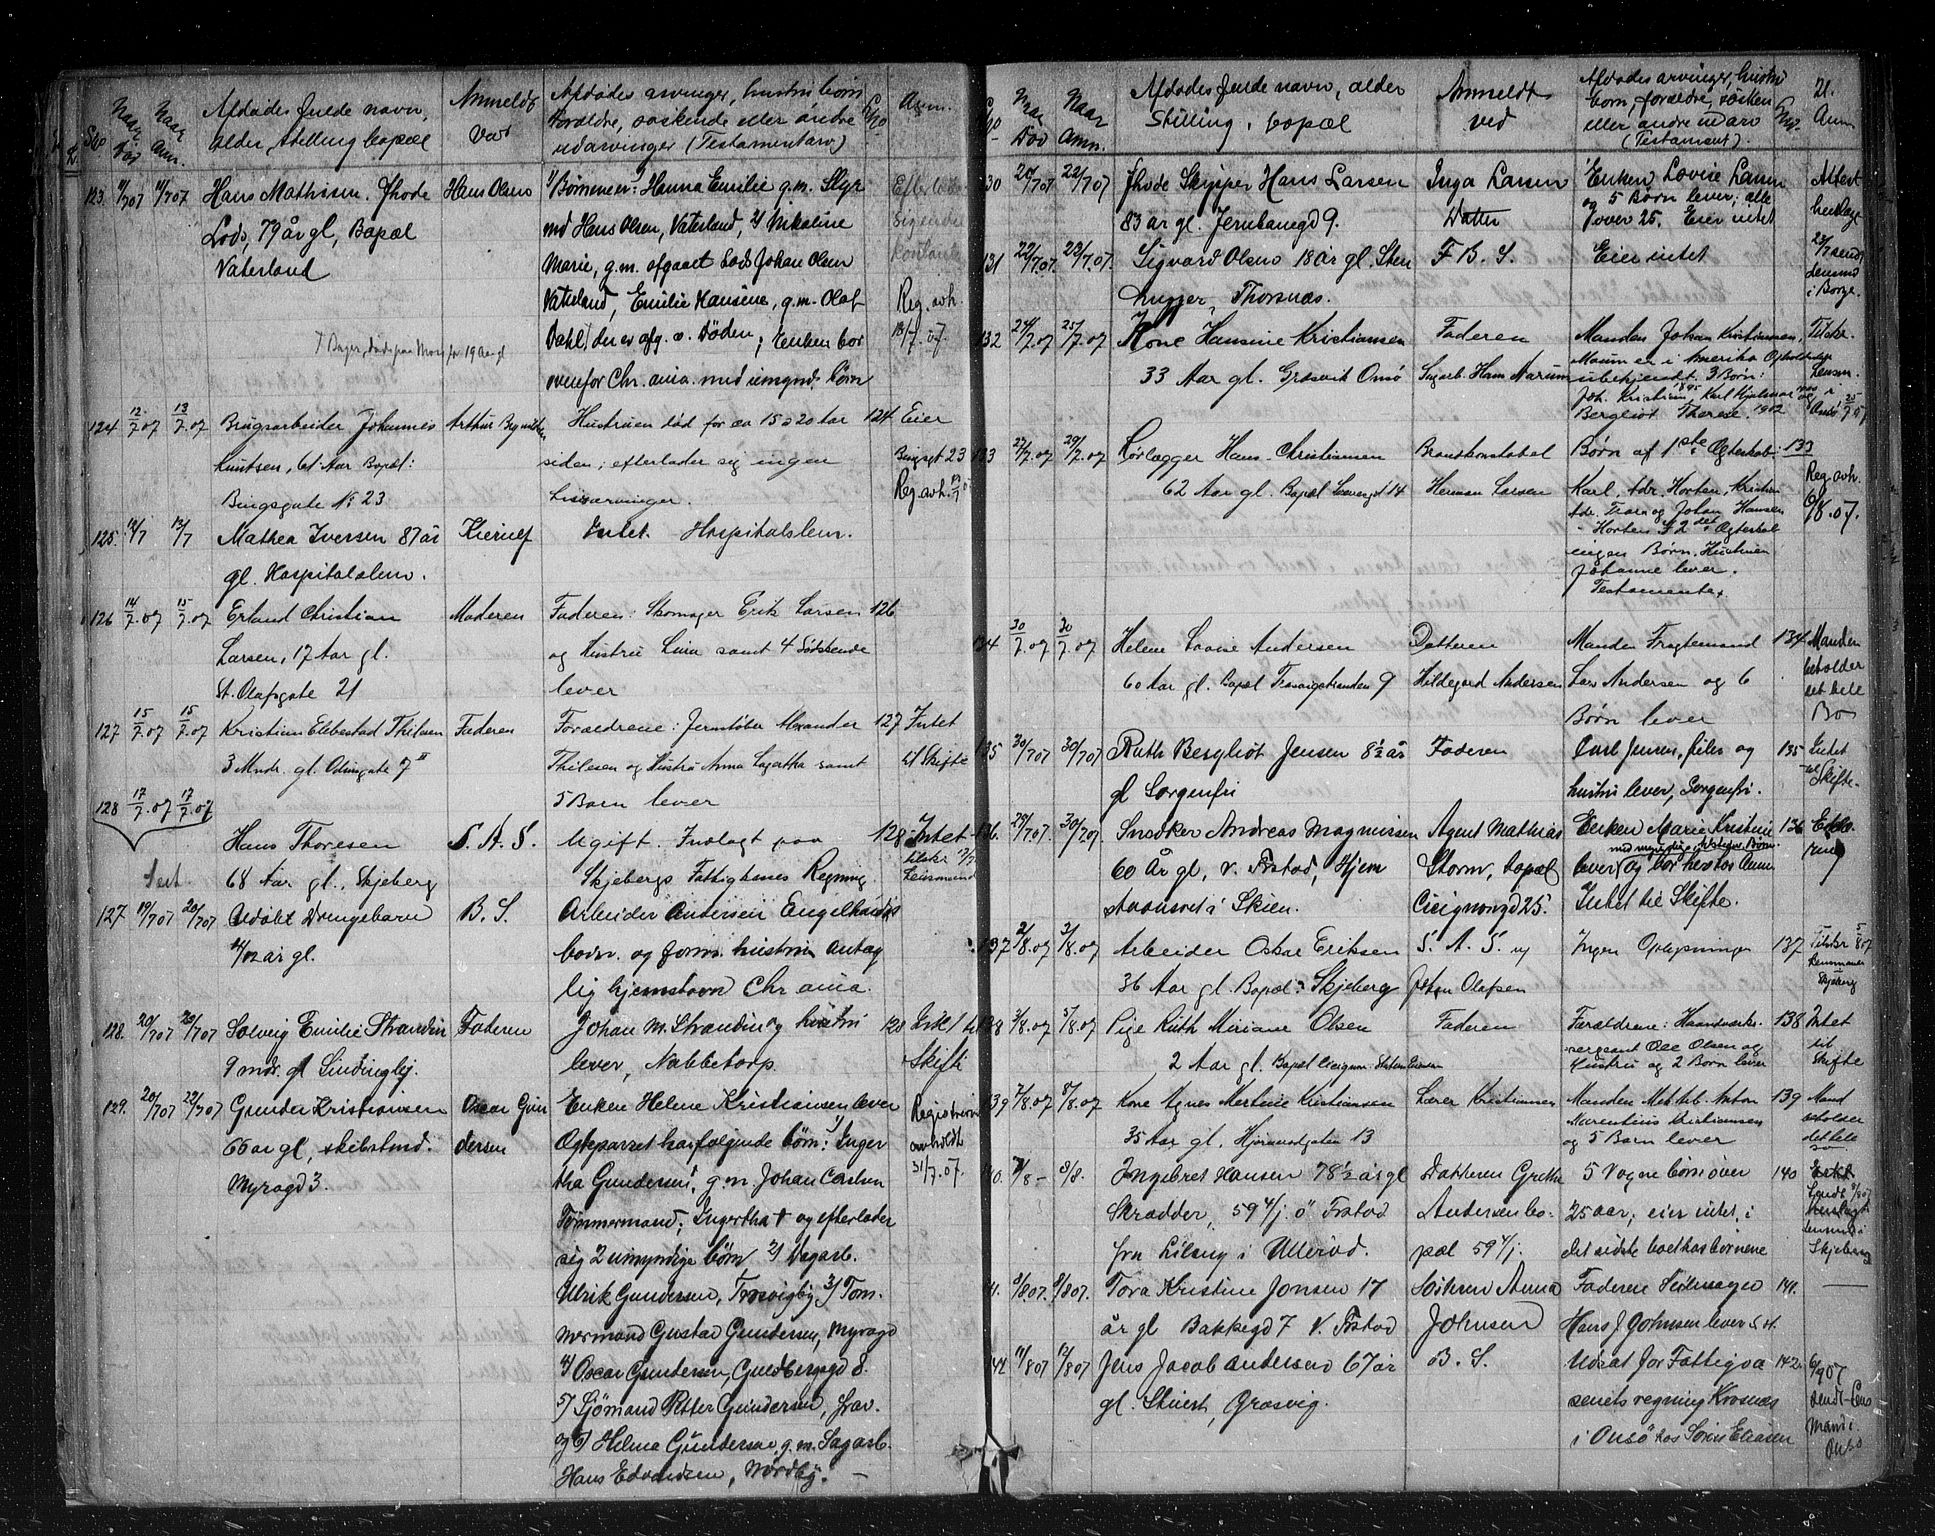 No
Naar død
Naar Anm.
Afdødes fulde navn,
alder, stilling bopæl
Anmeldt
ved
Afdødes arvinger, hustru børn
forældre, søskende eller andre
udarvinger (Testamentarv)
Anm.
123. 11/707 11/707 Hans Mathisen. fhode
Lods, 79 år gl, Bopæl
Vaterland
Hans Olsen
1/ Børnene er: Hanna Emilie g.m. Styr
md Hans Olsen, Vaterland, 2/ Nikoline
Marie, g.m. afgaaet Lods Johan Olsen
Vaterland, Emilie Hansine, g.m. Olaf
Dahl, der er afg. v. Døden; Enken bor
ovenfor Chr. ania. med umynd. børn
Reg. avh.
18/7.07.
124 12/7.07 13/7.07 Brugsarbeider Johannes
Knutsen, 61 Aar Bopæl:
Bingsgate No 23
Arthur
Hustruen død for ca 15 à 20 Aar
siden; efterlader sig ingen
Livsarvinger.
124 Eier
Bingsgt 23
Reg. avh.
125. 12/7 13/7 Mathea Iversen 87 år
gl. Hospitalslem.
Kierulf
Intet. Hospitalslem.
126 14/7.07 15/7.07 Erland Christian
Larsen, 17 Aar gl.
St. Olafsgate 21
Moderen
Faderen: Skomager Erik Larsen
og Hustru Lina samt 4 Sødskende
lever
126
127 15/7.07 15/7.07 Kristian Ellebestad Thilesen
3 Mndr. gl. Odinsgate 7 II
Faderen
Forældrene: Jernstøber Alexander
Thilesen og Hustru Anna Lagatha samt
5 Børn lever
127 Intet
til Skifte
128 17/7.07 17/7.07
Hans Thoresen
68 Aar gl., Skjeberg
S. A. S.
Ugift. Indlagt paa
Skjebergs Fattigkases Regning.
128 Intet
Lensmand
127. 19/707 20/707 Adolf Drengebarn
4/12 år gl.
B. S.
Arbeider Andersen Engelhaugs
boden. og form. hustru antag
lig hjemstavn Chr ania.
128. 20/707 20/707 Solveig Emilie Strandin
9 mdr. gl Lindinglej.
Faderen
Johan M. Strandin og hustru
lever, Nabbetorp.
128 Intet til
Skifte
129. 20/707 22/707 Gunder Kristiansen
66 år gl, skibstmd.
Myragd 3.
Oscar Gun
dersen
Enken Helene Kristiansen lever
Ægteparret har følgende børn: 1/ Inger
tha Gundersen, g.m. Johan Carlsen
Tømmermand; Ingertha † og efterlader
sig 2 umyndige børn 2/ Dagarb.
Ulrik Gundersen, Trosvigby 3/ Tøm.
mermand Gustav Gundersen, Myragd
4/ Oscar Gundersen, Guldbergsgd 8.
5/ Sjømand Petter Gundersen, frav.
og 6/ Helma Gundersen, g.m. Sagarb.
Hans Edvardsen, Nordby.
Registrering
anholdt
31/7.07.
No
Naar Død
Naar Anm.
Afdødes fulde navn, alder
Stilling, bopæl
Anmeldt
ved
Afdødes arvinger, hustru
børn, forældre, søsken
eller andre udarv
(Testament)
Anm
130 20/707 22/707 fhode Skipper Hans Larsen
83 år gl. Jernbanegd 9.
Inga Larsen
Datter
Enken Lovise Larsen
og 5 Børn lever; alle
over 25. Eier intet
Attest
henlagt
131 22/7.07 23/7.07. Sigvard Olsen 18 år gl. Sten
hugger, Thorsnæs.
F B. S.
Eier intet
23/7 sendt
Lensmd
i Borge.
132 24/7.07 25/7.07 Kone Hansine Kristiansen
33 Aar gl. Græsvik Onsø
Faderen
Sagarb. Hans Aarum
Manden Johan Kristiansen,
Maum er i Amerika Opholdssted
ubekjendt. 3 Børn:
Joh. Kristian, Karl Hjalmar og
Bergliot Therese. 1902
Tilskr.
Lensm.
i
Onsø 25/7 07
133 27/7.07 29/7.07 Rørlægger Hans Christiansen
62 Aar gl. Bopæl 14
Brandkonstabel
Herman Larsen
Børn af 1ste Ægteskab:
Karl, Adr. Horten, Kristian
Adr. Trara og Johan Hansen
Horten I 2det Ægteskab
ingen Børn. Hustruen
Johanne lever.
Testamente
133
Reg. avh.
9/8.07.
134 30/7.07 30/7.07 Helene Lovise Andersen
60 Aar gl. Bopæl Trosvigstranden 9
Datteren
Hildegard Andersen
Manden Fragtemand
Lars Andersen og 6
Børn lever
134 Manden
beholder
det hele
Bo
135 30/707 30/707 Ruth Bergliot Jensen 8½ år
gl Sorgenfri
Faderen
Carl Jensen, filer og
hustru lever, Sorgenfri.
135 Intet
til
Skifte.
136. 29/707 30/707. Snedker Andreas Magnussen
60 År gl, v. Frstad, Hjem
stavnsret i Skien.
Agent Mathias
Storm, bopæl
Cicignongd 25.
Enken Marie Kristine
lever og bor hos tos Anna
Intet til Skifte.
136
137 2/8.07 3/8.07 Arbeider Oskar Eriksen
36 Aar gl. Bopæl: Skjeberg
S. A. S. v/
Johan Olafsen
Ingen Oplysninger
137 Tilskr 5/8 07
Lensmanden
Skjeberg
138 3/8.07 5/8.07 Pige Ruth Miriane Olsen
2 Aar gl. Bopæl Cicignon
Faderen
Forældrene: Haandverks-
sergeant Ole Olsen og
Hustru og 2 Børn lever
138 Intet
til
Skifte
139 7/8.07 8/8.07 Kone Agnes Martine Kristiansen
35 Aar gl, Hjørnesgaten 13
Lærer Kristiansen
Manden Anton
Marentius Kristiansen
og 5 Børn lever
139 Mand
beholder
det hele
bo.
140. 7/8 – 8/8. Ingebret Hansen 78½ år gl
Skrædder, 59 4/j. ø Frstad
fra Lilleng i Ullerød.
Datteren Grethe
Andersen bo-
pæl 59 4/j.
5 Vogne børn over
25 aar; eier intet, i
det sidste boet hos børnene
140
Sendt 9/8 07
Lensmd i
Skjeberg
141. 8/807. 8/807. Tora Kristine Jonsen 17
år gl Bakkegd 7 V. Frstad
Søstren Anna
Johnsen
Faderen Seilmager
Hans J. Johnsen lever s.H.
141.
142 11/807 12/807 Jens Jacob Andersen 67 år
gl. Stuert, Græsvig.
B. S.
Udsat for Fattigvæ
senets regning Krosnæs
i Onsø hos Sørine Eliasen
142. 6/907
sendt Lens
mand i
Onsø